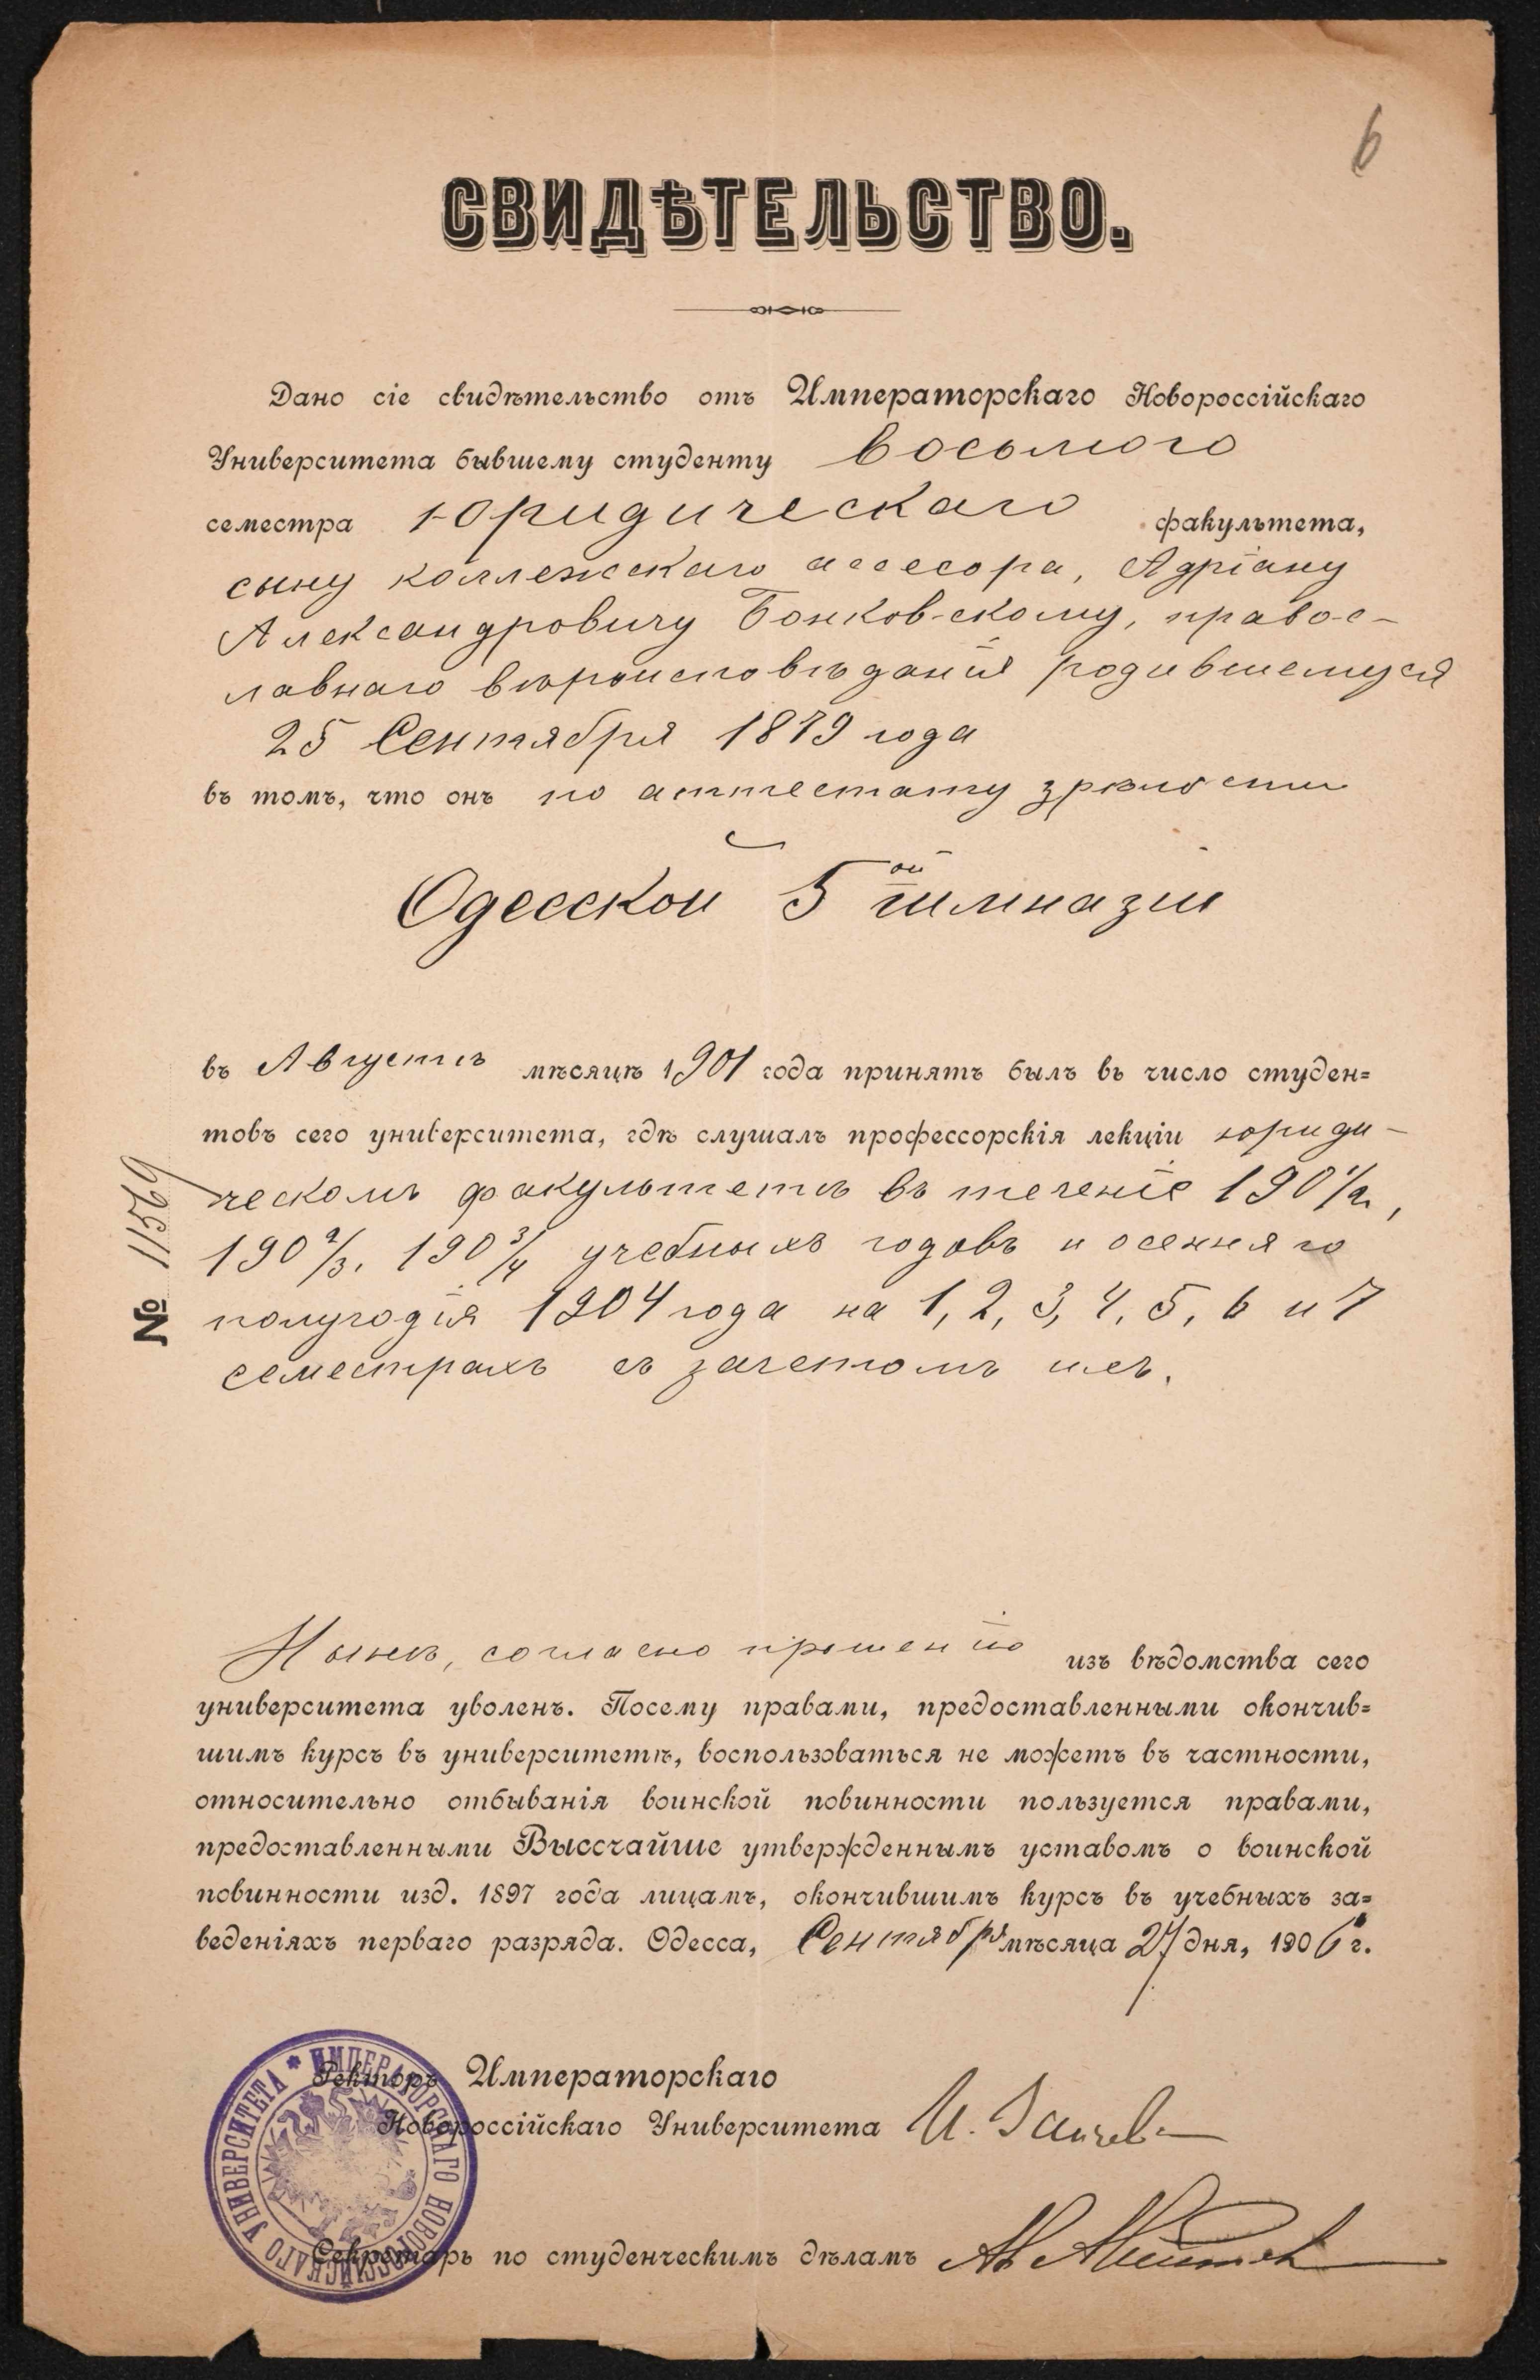 6
СВИДѢТЕЛЬСТВО.
Дано сіе свидѣтельство отъ Императорскаго Новороссійскаго
Университета бывшему студенту восьмого
семестра Юридическаго факультета,
сыну коллежскаго ассесора, Адріану
Александровичу Бонковскому, правос-
лавнаго вѣроисповѣданія родившемуся
25 Сентября 1879 года
въ томъ, что онъ по аттестату зрѣлости
Одесской 5ой гимназіи
въ Августѣ мѣсяцѣ 1901 года принятъ былъ въ число студен=
товъ сего университета, гдѣ слушалъ профессорскія лекціи юриди-
ческомъ факультетѣ въ теченіе 190½,
190⅔, 190¾ учебныхъ годовъ и осенняго
полугодія 1904 года на 1, 2, 3, 4, 5, 6 и 7
семестрахъ съ зачетомъ ихъ.
№ 11569
Нынѣ, согласно прошенію изъ вѣдомства сего
университета уволенъ. Посему правами, предоставленными окончив=
шимъ курсъ въ университетѣ, воспользоваться не можетъ въ частности,
относительно отбыванія воинской повинности пользуется правами,
предоставленными Высочайше утвержденнымъ уставомъ о воинской
повинности изд. 1897 года лицамъ, окончившимъ курсъ въ учебныхъ за=
веденіяхъ перваго разряда. Одесса, Сентября мѣсяца 27 дня, 1906 г.
Ректоръ Императорскаго
Новороссійскаго Университета И.
Секретарь по студенческимъ дѣламъ
ИМПЕРАТОРСКАГО НОВОРОССІЙСКАГО УНИВЕРСИТЕТА